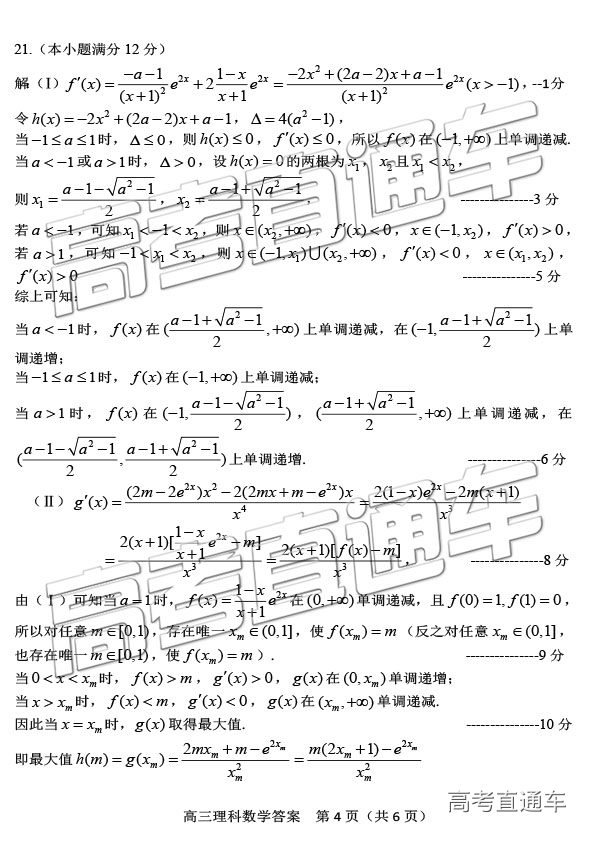 21.（本小题满分 12 分）
解（Ⅰ）f′(x) = (-a-1)/(x+1)² e^{2x} + 2 (1-x)/(x+1) e^{2x} = (-2x²+(2a-2)x+a-1)/(x+1)² e^{2x} (x>-1)，--1分
令 h(x) = -2x²+(2a-2)x+a-1，Δ = 4(a²-1)，
当 -1≤a≤1 时，Δ≤0，则 h(x)≤0，f′(x)≤0，所以 f(x) 在 (-1,+∞) 上单调递减.
当 a<-1 或 a>1 时，Δ>0，设 h(x)=0 的两根为 x₁，x₂ 且 x₁<x₂，
则 x₁ = (a-1-√(a²-1))/2，x₂ = (a-1+√(a²-1))/2， ---------------3 分
若 a<-1，可知 x₁<-1<x₂，则 x∈(x₂,+∞)，f′(x)<0，x∈(-1,x₂)，f′(x)>0，
若 a>1，可知 -1<x₁<x₂，则 x∈(-1,x₁)∪(x₂,+∞)，f′(x)<0，x∈(x₁,x₂)，
f′(x)>0 ---------------5 分
综上可知：
当 a<-1 时，f(x) 在 ((a-1+√(a²-1))/2,+∞) 上单调递减，在 (-1,(a-1+√(a²-1))/2) 上单
调递增；
当 -1≤a≤1 时，f(x) 在 (-1,+∞) 上单调递减；
当 a>1 时，f(x) 在 (-1,(a-1-√(a²-1))/2)，((a-1+√(a²-1))/2,+∞) 上单调递减，在
((a-1-√(a²-1))/2,(a-1+√(a²-1))/2) 上单调递增. ---------------6 分
（Ⅱ）g′(x) = ((2m-2e^{2x})x²-2(2mx+m-e^{2x})x)/x⁴ = (2(1-x)e^{2x}-2m(x+1))/x³
= 2(x+1)[(1-x)/(x+1) e^{2x}-m]/x³ = 2(x+1)[f(x)-m]/x³， ---------------8 分
由（Ⅰ）可知当 a=1 时，f(x) = (1-x)/(x+1) e^{2x} 在 (0,+∞) 单调递减，且 f(0)=1, f(1)=0，
所以对任意 m∈[0,1)，存在唯一 x_m∈(0,1]，使 f(x_m)=m（反之对任意 x_m∈(0,1]，
也存在唯一 m∈[0,1)，使 f(x_m)=m）. ---------------9 分
当 0<x<x_m 时，f(x)>m，g′(x)>0，g(x) 在 (0,x_m) 单调递增；
当 x>x_m 时，f(x)<m，g′(x)<0，g(x) 在 (x_m,+∞) 单调递减.
因此当 x=x_m 时，g(x) 取得最大值. ---------------10 分
即最大值 h(m) = g(x_m) = (2mx_m+m-e^{2x_m})/x_m² = (m(2x_m+1)-e^{2x_m})/x_m²
高三理科数学答案 第 4 页（共 6 页）
高考直通车
高考直通车
高考直通车